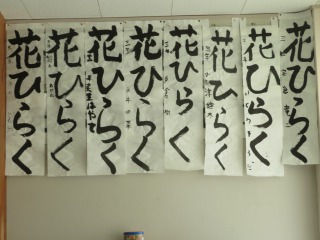 花ひらく
花ひらく
花ひらく
花ひらく
花ひらく
花ひらく
花ひらく
花ひらく